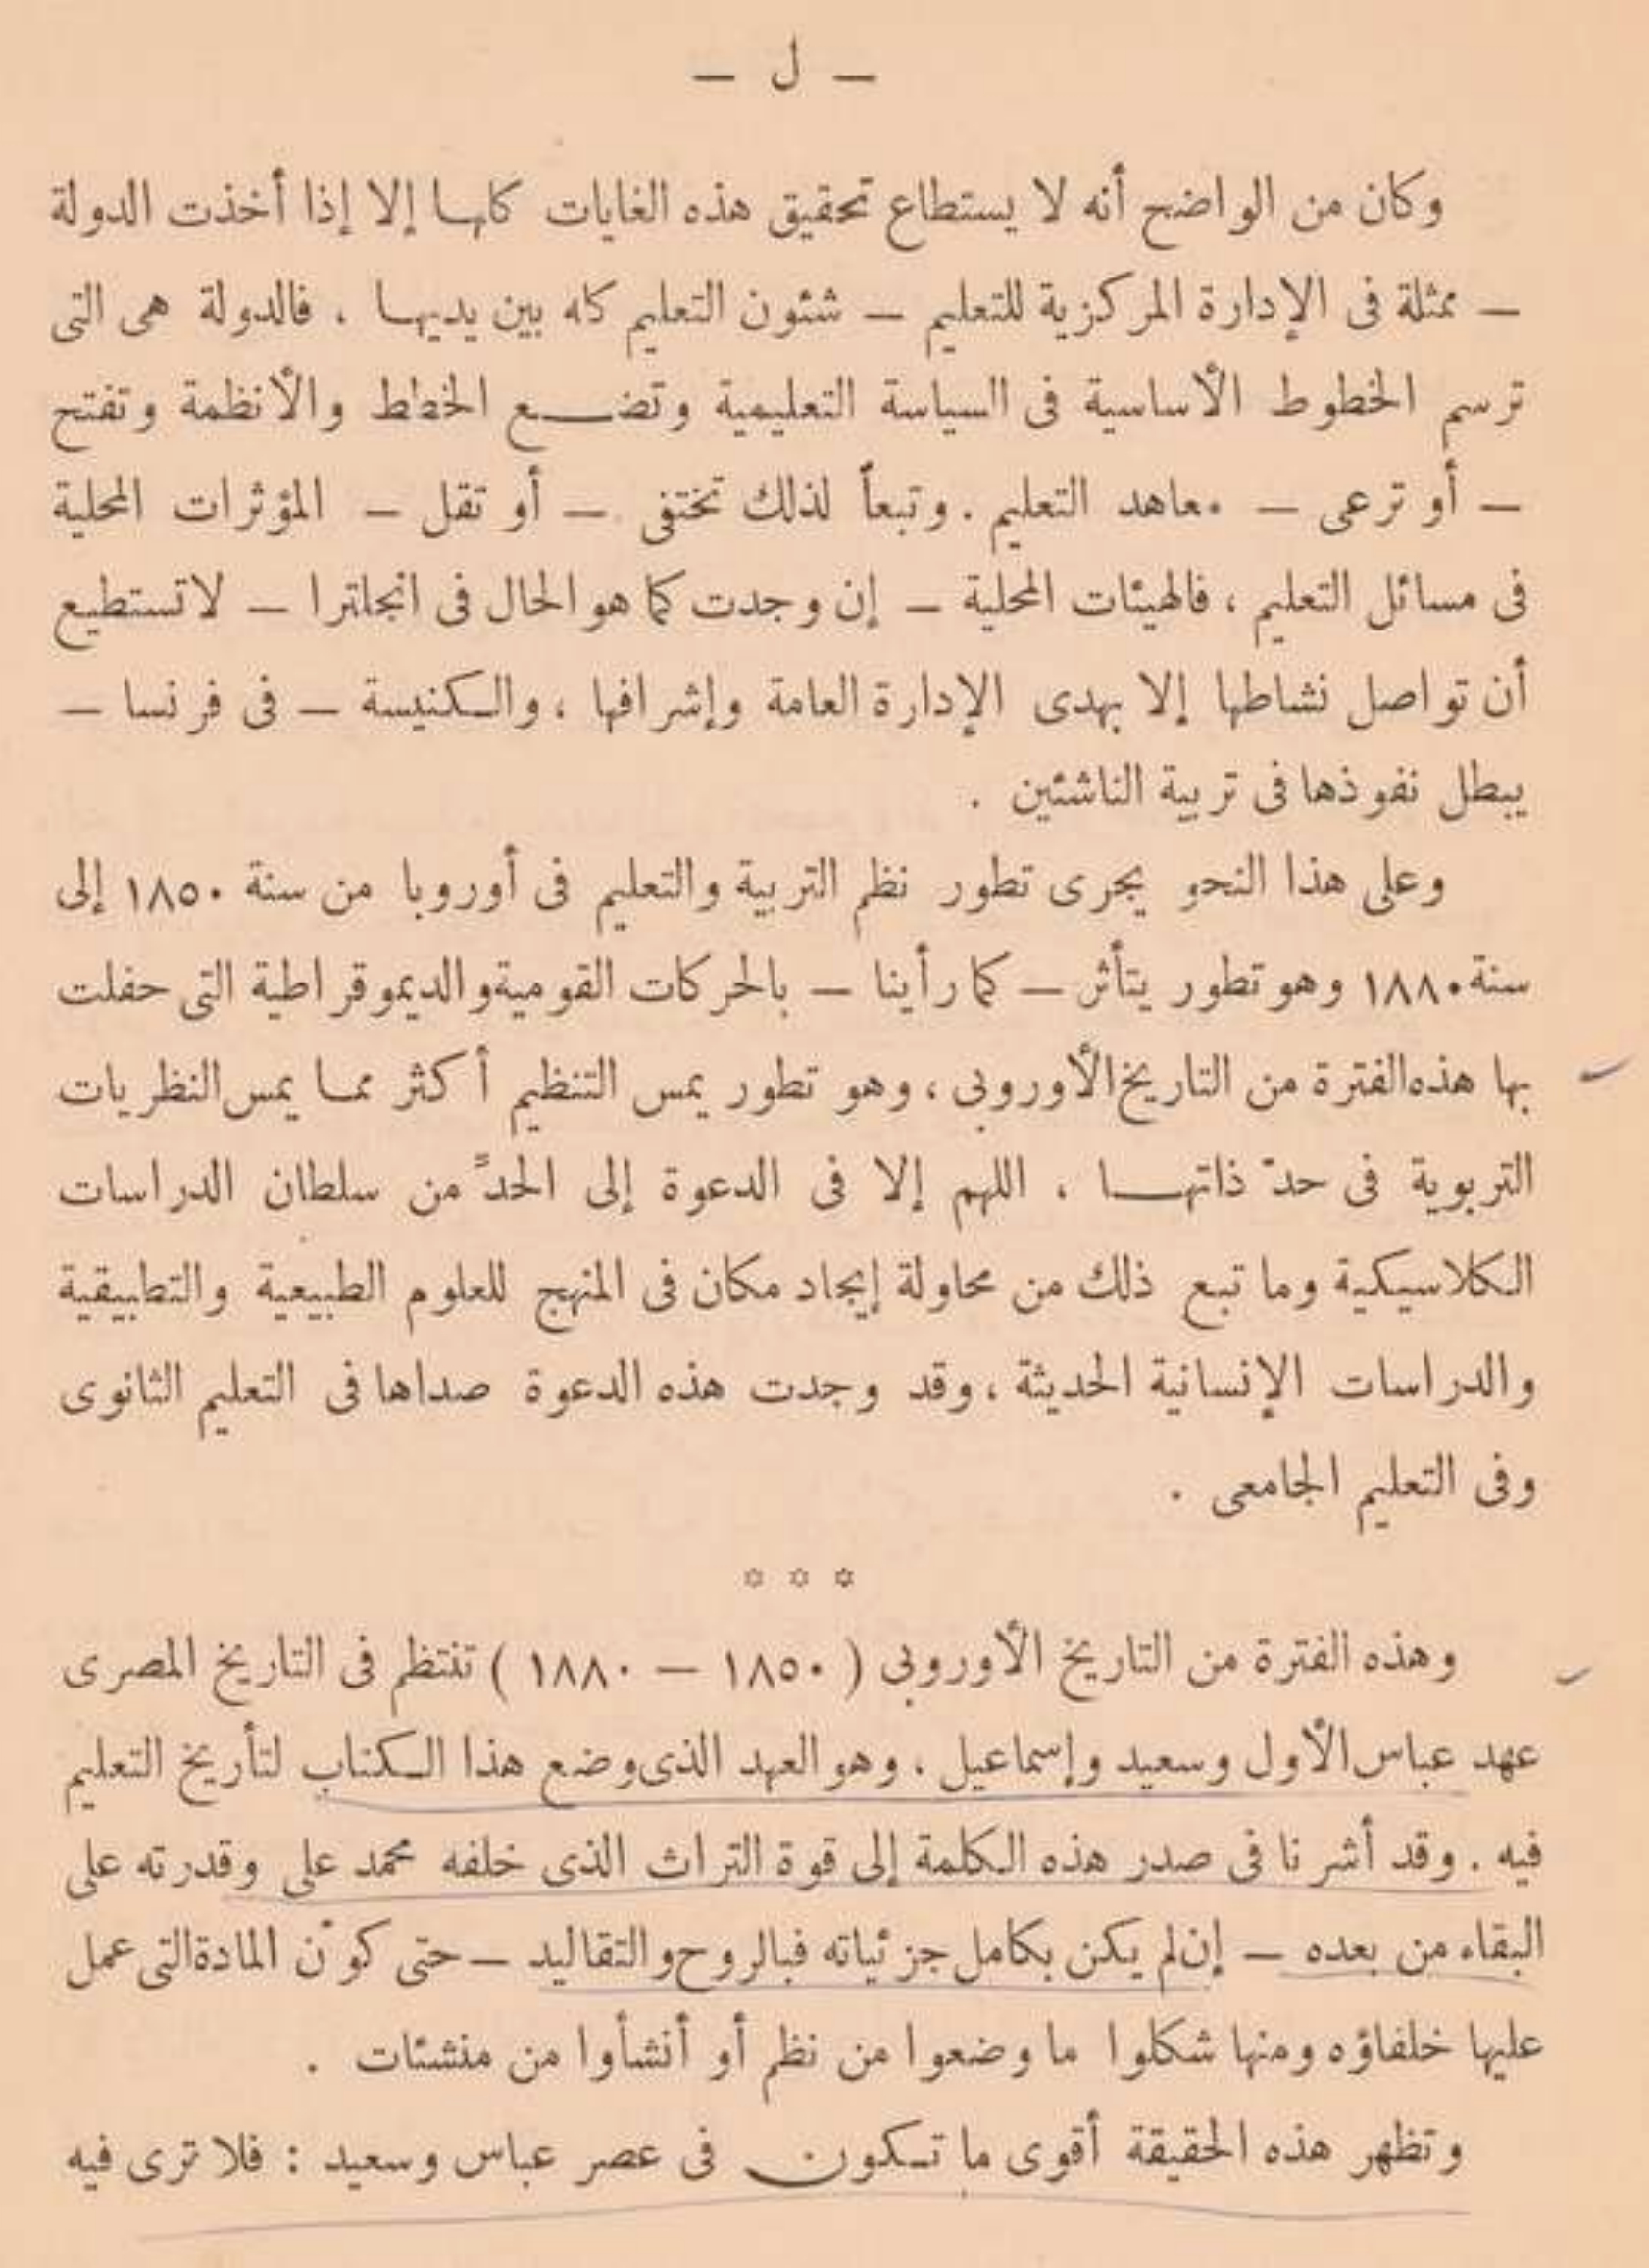 — ل —
وكان من الواضح أنه لا يستطاع تحقيق هذه الغايات كلها إلا إذا أخذت الدولة
— ممثلة فى الإدارة المركزية للتعليم — شئون التعليم كله بين يديها ، فالدولة هى التى
ترسم الخطوط الأساسية فى السياسة التعليمية وتضع الخطط والأنظمة وتفتح
— أو ترعى — معاهد التعليم . وتبعاً لذلك تختفى — أو تقل — المؤثرات المحلية
فى مسائل التعليم ، فالهيئات المحلية — إن وجدت كما هو الحال فى انجلترا — لا تستطيع
أن تواصل نشاطها إلا بهدى الإدارة العامة وإشرافها ، والكنيسة — فى فرنسا —
يبطل نفوذها فى تربية الناشئين .
وعلى هذا النحو يجرى تطور نظم التربية والتعليم فى أوروبا من سنة ١٨٥٠ إلى
سنة ١٨٨٠ وهو تطور يتأثر — كما رأينا — بالحركات القومية والديموقراطية التى حفلت
بها هذه الفترة من التاريخ الأوروبى ، وهو تطور يمس التنظيم أكثر مما يمس النظريات
التربوية فى حدّ ذاتها ، اللهم إلا فى الدعوة إلى الحدّ من سلطان الدراسات
الكلاسيكية وما تبع ذلك من محاولة إيجاد مكان فى المنهج للعلوم الطبيعية والتطبيقية
والدراسات الإنسانية الحديثة ، وقد وجدت هذه الدعوة صداها فى التعليم الثانوى
وفى التعليم الجامعى .
✡ ✡ ✡
وهذه الفترة من التاريخ الأوروبى ( ١٨٥٠ — ١٨٨٠ ) تنتظم فى التاريخ المصرى
عهد عباس الأول وسعيد وإسماعيل ، وهو العهد الذى وضع هذا الكتاب لتأريخ التعليم
فيه . وقد أشرنا فى صدر هذه الكلمة إلى قوة التراث الذى خلفه محمد على وقدرته على
البقاء من بعده — إن لم يكن بكامل جزئياته فبالروح والتقاليد — حتى كوّن المادة التى عمل
عليها خلفاؤه ومنها شكلوا ما وضعوا من نظم أو أنشأوا من منشئات .
وتظهر هذه الحقيقة أقوى ما تكون فى عصر عباس وسعيد : فلا ترى فيه